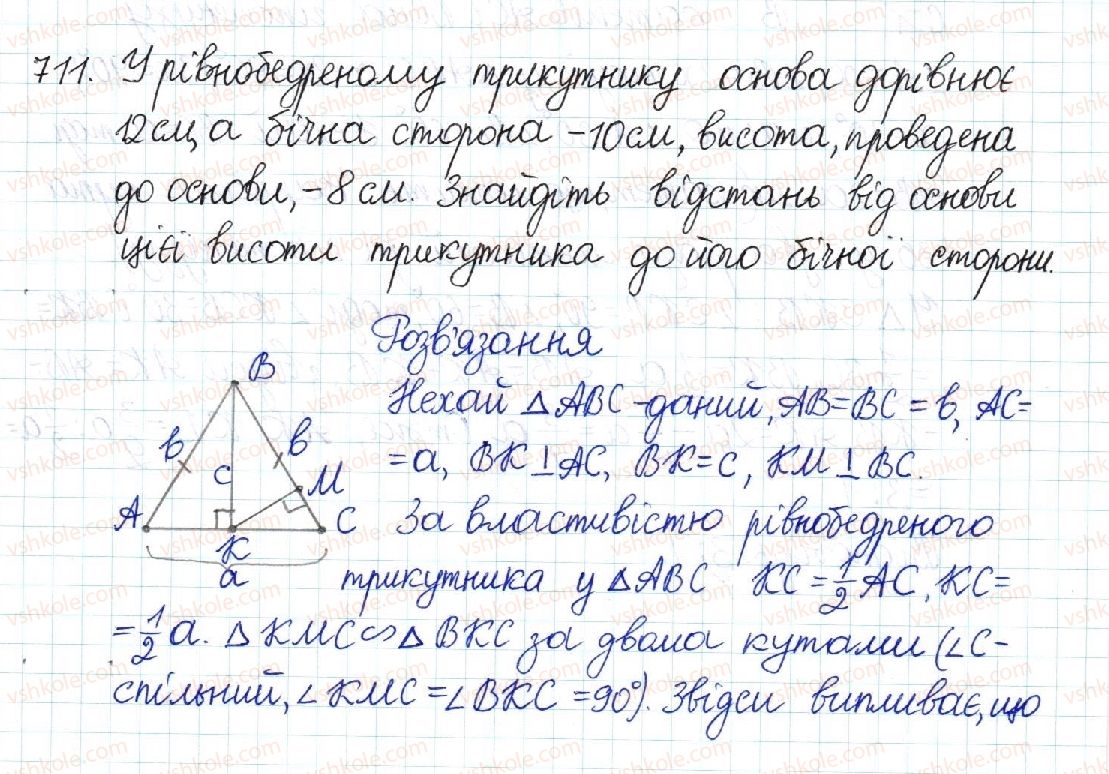 711. У рівнобедреному трикутнику основа дорівнює
12 см, а бічна сторона - 10 см, висота, проведена
до основи, - 8 см. Знайдіть відстань від основи
цієї висоти трикутника до його бічної сторони.
Розв'язання
Нехай △ABC - даний, AB = BC = b, AC =
= a, BK ⊥ AC, BK = c, KM ⊥ BC.
За властивістю рівнобедреного
трикутника у △ABC KC = 1/2 AC, KC =
= 1/2 a. △KMC ∽ △BKC за двома кутами (∠C -
спільний, ∠KMC = ∠BKC = 90°). Звідси випливає, що
B
b
b
c
M
A
C
K
a
vshkole.com